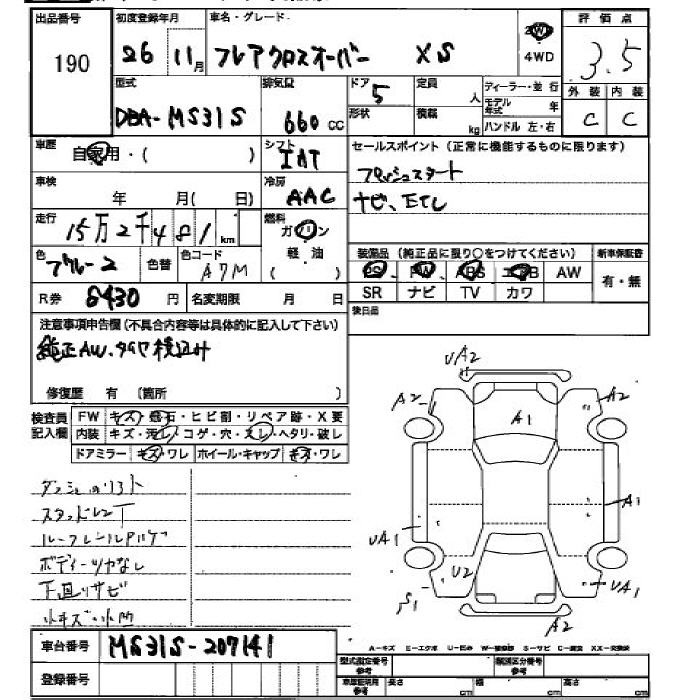 出品番号 初度登録年月 車名・グレード 評価点
190 26 11月 フレアクロスオーバー XS 2WD 4WD 3.5
型式 排気量 ドア 定員 ディーラー・並行 外装 内装
DBA-MS31S 660cc 5 人 モデル年式 年 C C
形状 積載 kg ハンドル 左・右
車歴 自家用・( ) シフト IAT セールスポイント(正常に機能するものに限ります)
プッシュスタート
車検 年 月( 日) 冷房 AAC ナビ、ETC
走行 15万2千481km 燃料 ガソリン 軽油
装備品(純正品に限り○をつけてください) 新車保証書
色 ブルー2 色替 色コード A7M PS PW ABS エアB AW 有・無
SR ナビ TV カワ
R券 8430円 名変期限 月 日 後日品
注意事項申告欄(不具合内容等は具体的に記入して下さい)
純正AW、タイヤ積込み
修復歴 有 (箇所 )
検査員記入欄 FW キズ・飛石・ヒビ割・リペア跡・X要
内装 キズ・汚レ・コゲ・穴・スレ・ヘタリ・破レ
ドアミラー キズ・ワレ ホイール・キャップ キズ・ワレ
UA2
A2 A2
A1
UA1 A1
U2 UA1
S1
A2
ボディーツヤなし
下廻りサビ
小キズ小凹
車台番号 MS31S-207141
A-キズ E-エクボ U-凹み W-補修跡 S-サビ C-腐食 XX-交換済
登録番号 型式指定番号 参考 類別区分番号 参考
車庫証明用 参考 長さ cm 幅 cm 高さ cm